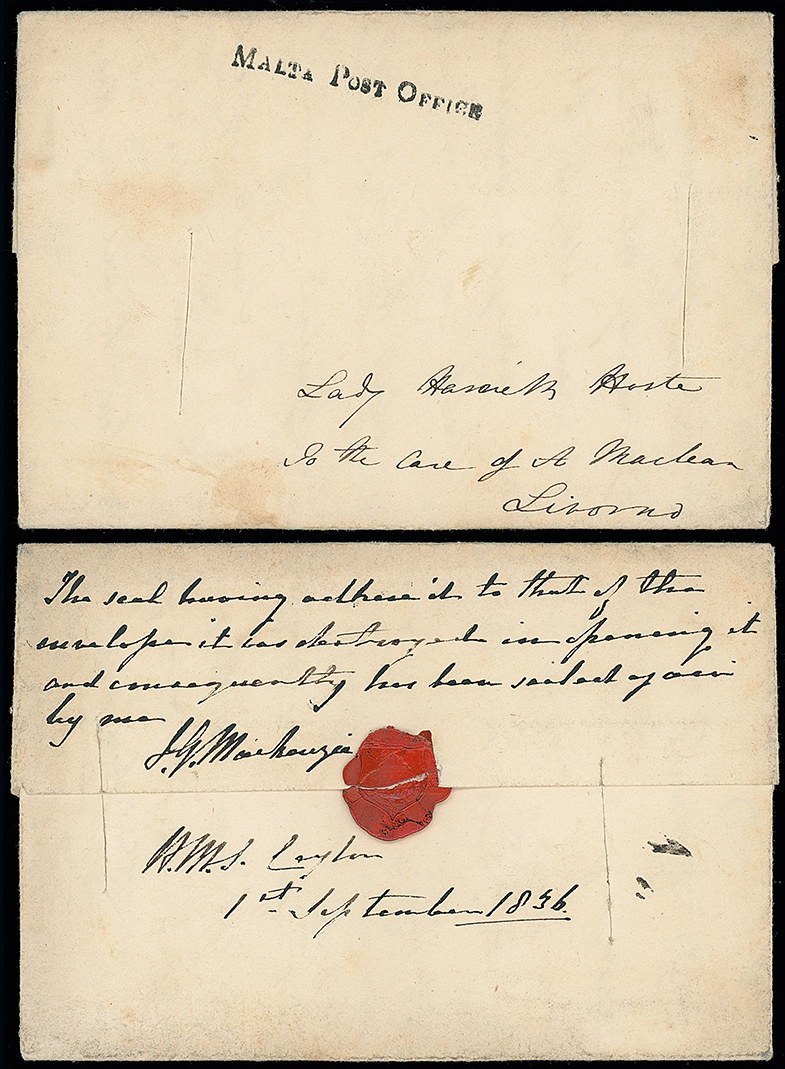 MALTA POST OFFICE
Lady Harriett Hoste
To the Care of A Maclean
Livorno
The seal having adhere'd to that of the
envelope it was destroyed in opening it
and consequently has been sealed again
by me
J. G. Mackenzie
H.M.S. Ceylon
1st September 1836.